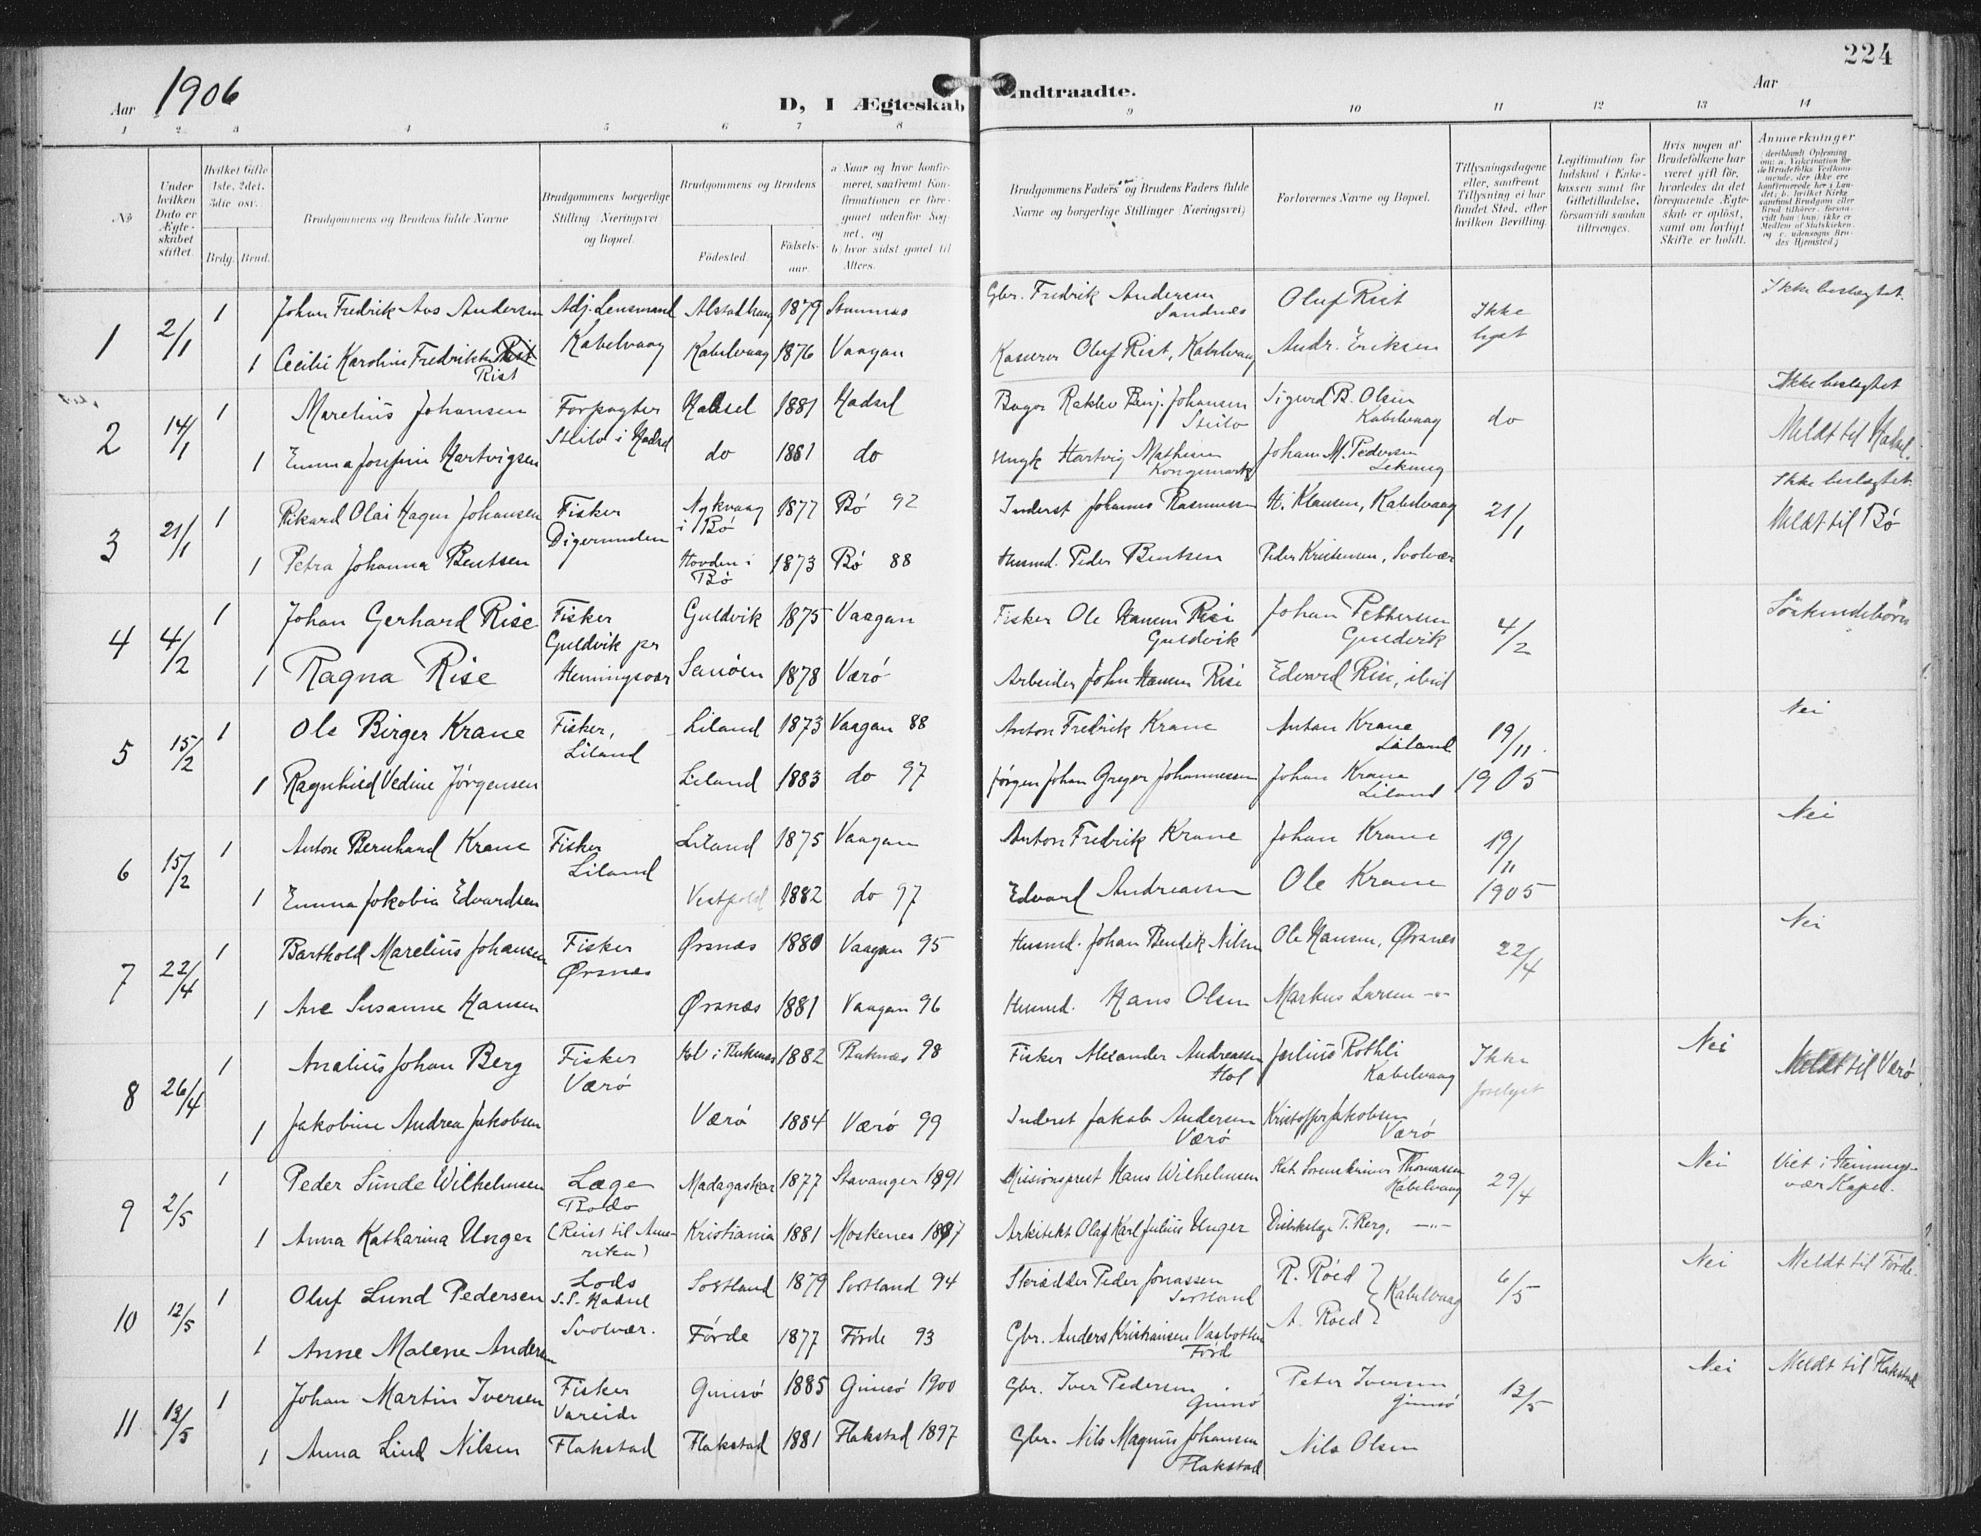 224
Aar 1906
D, I Ægteskab Indtraadte.
Aar
1 2 3 4 5 6 7 8 9 10 11 12 13 14
No
Under hvilken Dato er Ægteskabet stiftet.
Hvilket Gifte 1ste, 2det, 3die osv.
Brdg. Brud.
Brudgommens og Brudens fulde Navne
Brudgommens borgerlige Stilling (Næringsvei) og Bopæl.
Brudgommens og Brudens
Fødested.
Fødselsaar.
a Naar og hvor konfirmeret, saafremt Konfirmationen er foregaaet udenfor Sognet, og
b hvor sidst gaaet til Alters.
Brudgommens Faders og Brudens Faders fulde Navne og borgerlige Stillinger (Næringsvei)
Forlovernes Navne og Bopæl.
Tillysningsdagene eller, saafremt Tillysning ei har fundet Sted, efter hvilken Bevilling.
Legitimation for Indskud i Enkekassen samt for Giftetilladelse, forsaavidt saadan tiltrænges.
Hvis nogen af Brudefolkene har været gift før, hvorledes da det foregaaende Ægteskab er opløst, samt om lovligt Skifte er holdt.
Anmerkninger
1 2/1 1 Johan Fredrik Aas Andersen Adj. Lensmand Alstadhaug 1879 Stamnes Gbr. Fredrik Andersen Sandnes Oluf Rist Ikke lyst Ikke beslegtet.
1 Cecilie Karoline Fredrikke Rist Kabelvaag Kabelvaag 1876 Vaagan Kaserer Oluf Rist, Kabelvaag Andr. Eriksen
2 14/1 1 Marelius Johansen Forpagter Hadsel 1881 Hadsel Johansen Sigurd B. Olsen Kabelvaag do Ikke beslegtet
1 Emma Josefine Hartvigsen Steilo i Hadsel do 1881 do Ungk Hartvig Mathisen Kongsmark Johan M. Pedersen Meldt til Hadsel.
3 21/1 1 Rikard Olai Hagen Johansen Fisker Nykvaag i Bø 1877 Bø 92 Inderst Johannes Rasmussen H. Klausen, Kabelvaag 21/1 Ikke beslegtet.
1 Petra Johanna Bentsen Digermulen Hovden i Bø 1873 Bø 88 Husmd. Peder Bentsen Peder Kristensen, Svolvær Meldt til Bø
4 4/2 1 Johan Gerhard Rise Fisker Guldvik 1875 Vaagan Fisker Ole Hansen Rise Guldvik Johan Pettersen Guldvik 4/2 Söskendebörn
1 Ragna Rise Guldvik pr Henningsvær Sanöen 1878 Værö Arbeider John Hansen Rise Edvard Rise, ibid
5 15/2 1 Ole Birger Krane Fisker, Liland Liland 1873 Vaagan 88 Anton Fredrik Krane Anton Krane Liland 19/11 1905 Nei
1 Ragnhild Vedine Jørgensen Liland 1883 do 97 Jørgen Johan Greger Johannessen Johan Krane Liland
6 15/2 1 Anton Bernhard Krane Fisker Liland Liland 1875 Vaagan Anton Fredrik Krane Johan Krane 19/11 1905 Nei
1 Emma Jakobia Edvardsen Vestpold 1882 do 97 Edvard Andreassen Ole Krane
7 22/4 1 Barthold Marelius Johansen Fisker Ørsnes Ørsnes 1880 Vaagan 95 Husmd. Johan Bendik Nilsen Ole Hansen, Ørsnes 22/4 Nei
1 Ane Susanne Hansen Ørsnes 1881 Vaagan 96 Husmd. Hans Olsen Markus Larsen -"-
8 26/4 1 Analius Johan Berg Fisker Værö Hol i Buknes 1882 Buknes 98 Fisker Alexander Andreassen Hol Julius Rothli Kabelvaag Ikke forelyst Nei Meldt til Værö
1 Jakobine Andrea Jakobsen Værö 1884 Værö 99 Inderst Jakob Andersen Værö Kristoffer Jakobsen Værö
9 2/5 1 Peder Sunde Wilhelmsen Læge Bodø Madagaskar 1877 Stavanger 1891 Missionsprest Hans Wilhelmsen Kst. Sorenskriver Thomassen Kabelvaag 29/4 Nei Viet i Henningsvær Kapel.
1 Anna Katharina Unger (Reist til Ameriken) Kristiania 1881 Moskenes 1897 Arkitekt Olaf Karl Julius Unger Distrikslæge T. Berg, -"-
10 12/5 1 Oluf Lund Pedersen Lods S.S. Hadsel Svolvær. Sortland 1879 Sortland 94 Skrædder Peder Jonassen Sortland R. Röed Kabelvaag 6/5 Nei Meldt til Förde.
1 Anne Malene Andersen Förde 1877 Förde 93 Gbr. Anders Kristiansen Vasbotten Förd A. Röed
11 13/5 1 Johan Martin Iversen Fisker Vareide Gimsö 1885 Gimsö 1900 Gbr. Iver Pedersen Gimsö Peter Iversen Gimsö 13/5 Nei Meldt til Flakstad
1 Anna Lind Nilsen Flakstad Flakstad 1881 Flakstad 1897 Gbr. Nils Magnus Johansen Flakstad Nils Olsen